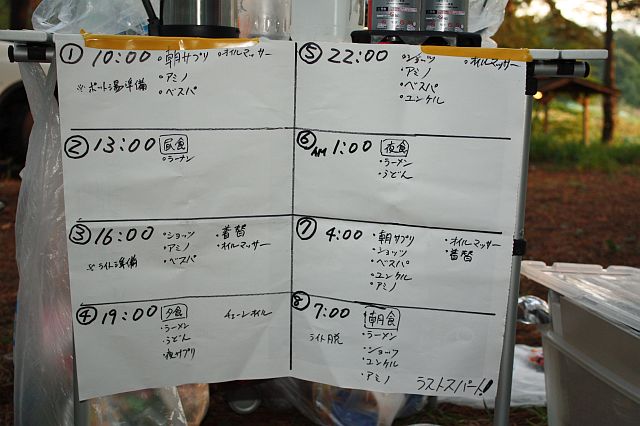 ① 10:00 ・朝サプリ ・オイルマッサー
・アミノ
・ベスパ
② 13:00 昼食
・ラーメン
③ 16:00 ・ショッツ ・着替
・アミノ ・オイルマッサー
・ベスパ
※ライト準備
④ 19:00 夕食 チェーンオイル
・ラーメン
・うどん
・夜サプリ
⑤ 22:00 ・ショッツ ・オイルマッサー
・アミノ
・ベスパ
・ユンケル
⑥ AM 1:00 夜食
・ラーメン
・うどん
⑦ 4:00 ・朝サプリ ・オイルマッサー
・ショッツ ・着替
・ベスパ
・ユンケル
・アミノ
⑧ 7:00 朝食
ライト脱 ・ラーメン
・ショッツ
・ユンケル
・アミノ
ラストスパート!!